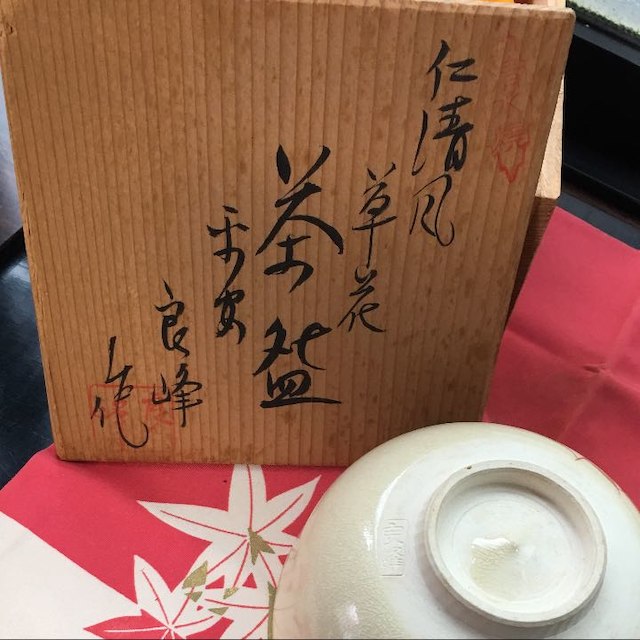 仁清風
草花
茶盌
平安
良峰
作